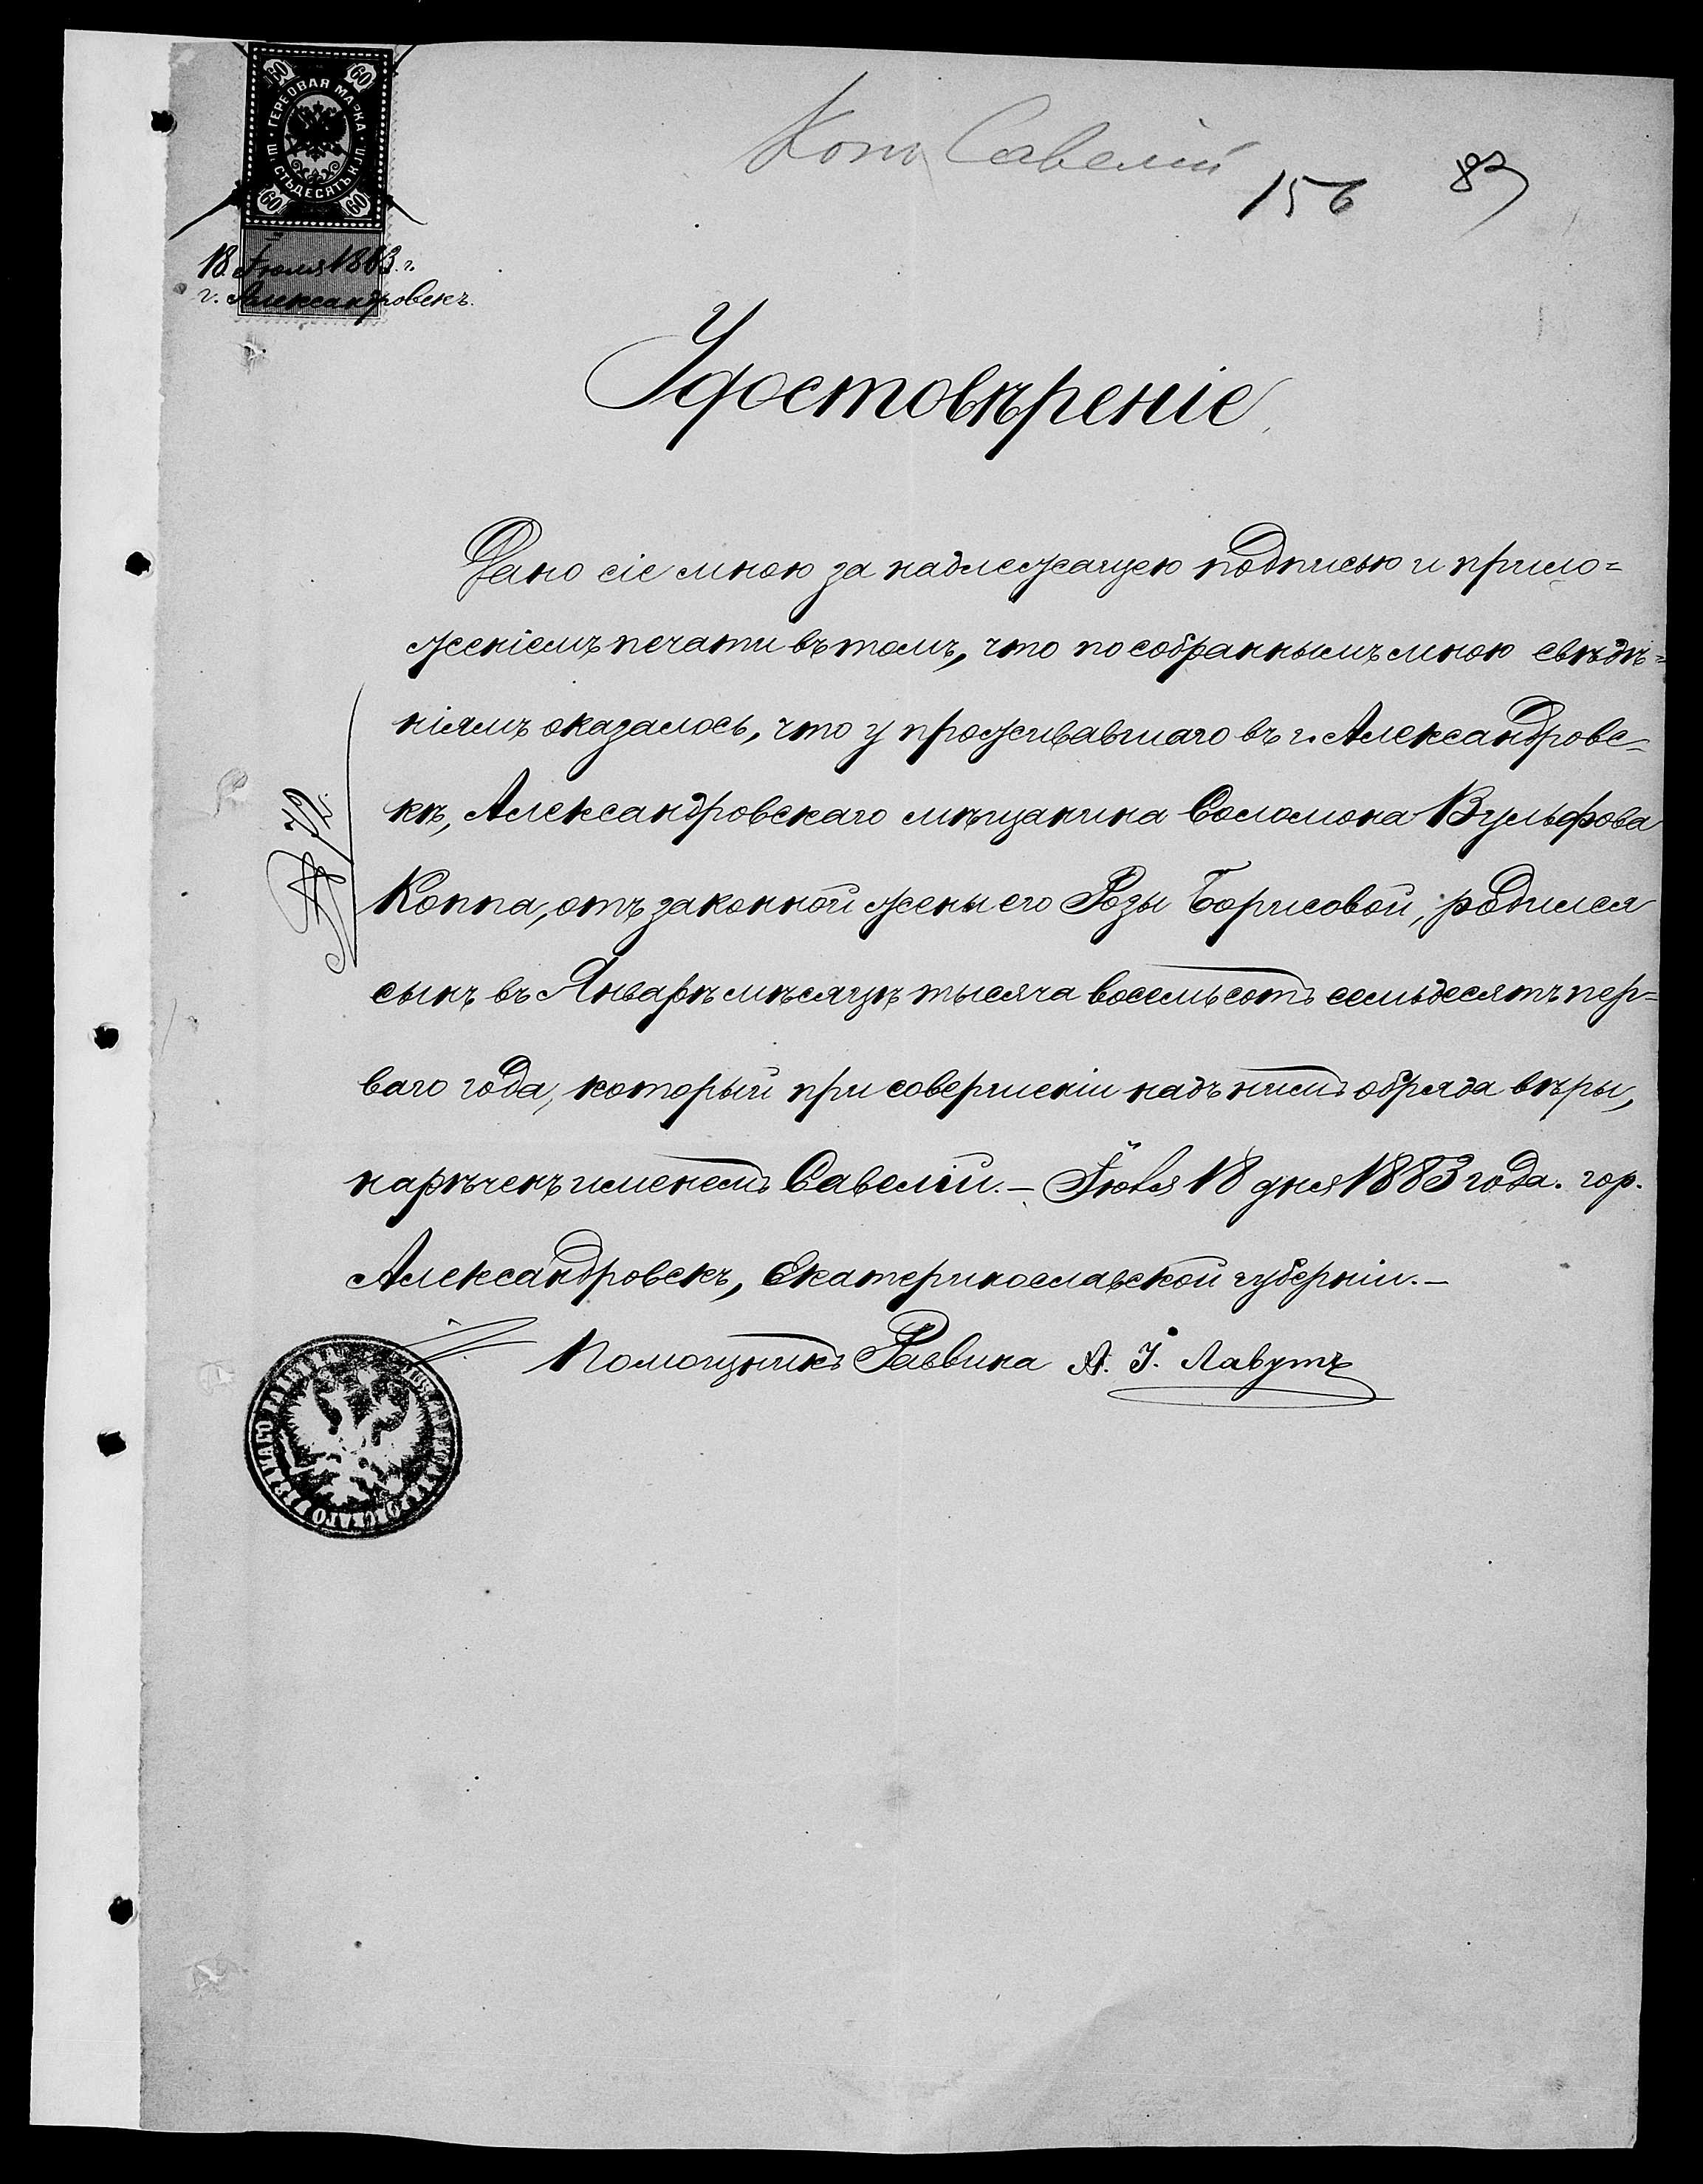 ГЕРБОВАЯ МАРКА
ШЕСТЬДЕСЯТЪ К.
60 60
60 60
18 Іюля 1883 г.
г. Александровскъ.
Копп Савелій
156 83
Удостовѣреніе
Дано сіе мною за надлежащею подписью и прило=
женіемъ печати въ томъ, что по собраннымъ мною свѣдѣ=
ніямъ оказалось, что у проживавшаго въ г. Александровс-
кѣ, Александровскаго мѣщанина Соломона Вульфова
Коппа, отъ законной жены его Розы Борисовой, родился
сынъ въ Январѣ мѣсяцѣ тысяча восемьсотъ семьдесятъ пер=
ваго года, который при совершеніи надъ нимъ обряда вѣры,
нарѣченъ именемъ Савелій.— Іюля 18 дня 1883 года. гор.
Александровскъ, Екатеринославской губерніи.—
Помощникъ Раввина А. I. Лавутъ
№ 72